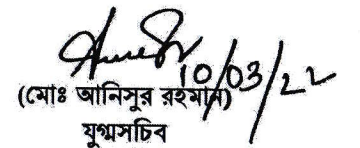 10/03/22
(মোঃ আনিসুর রহমান)
যুগ্মসচিব